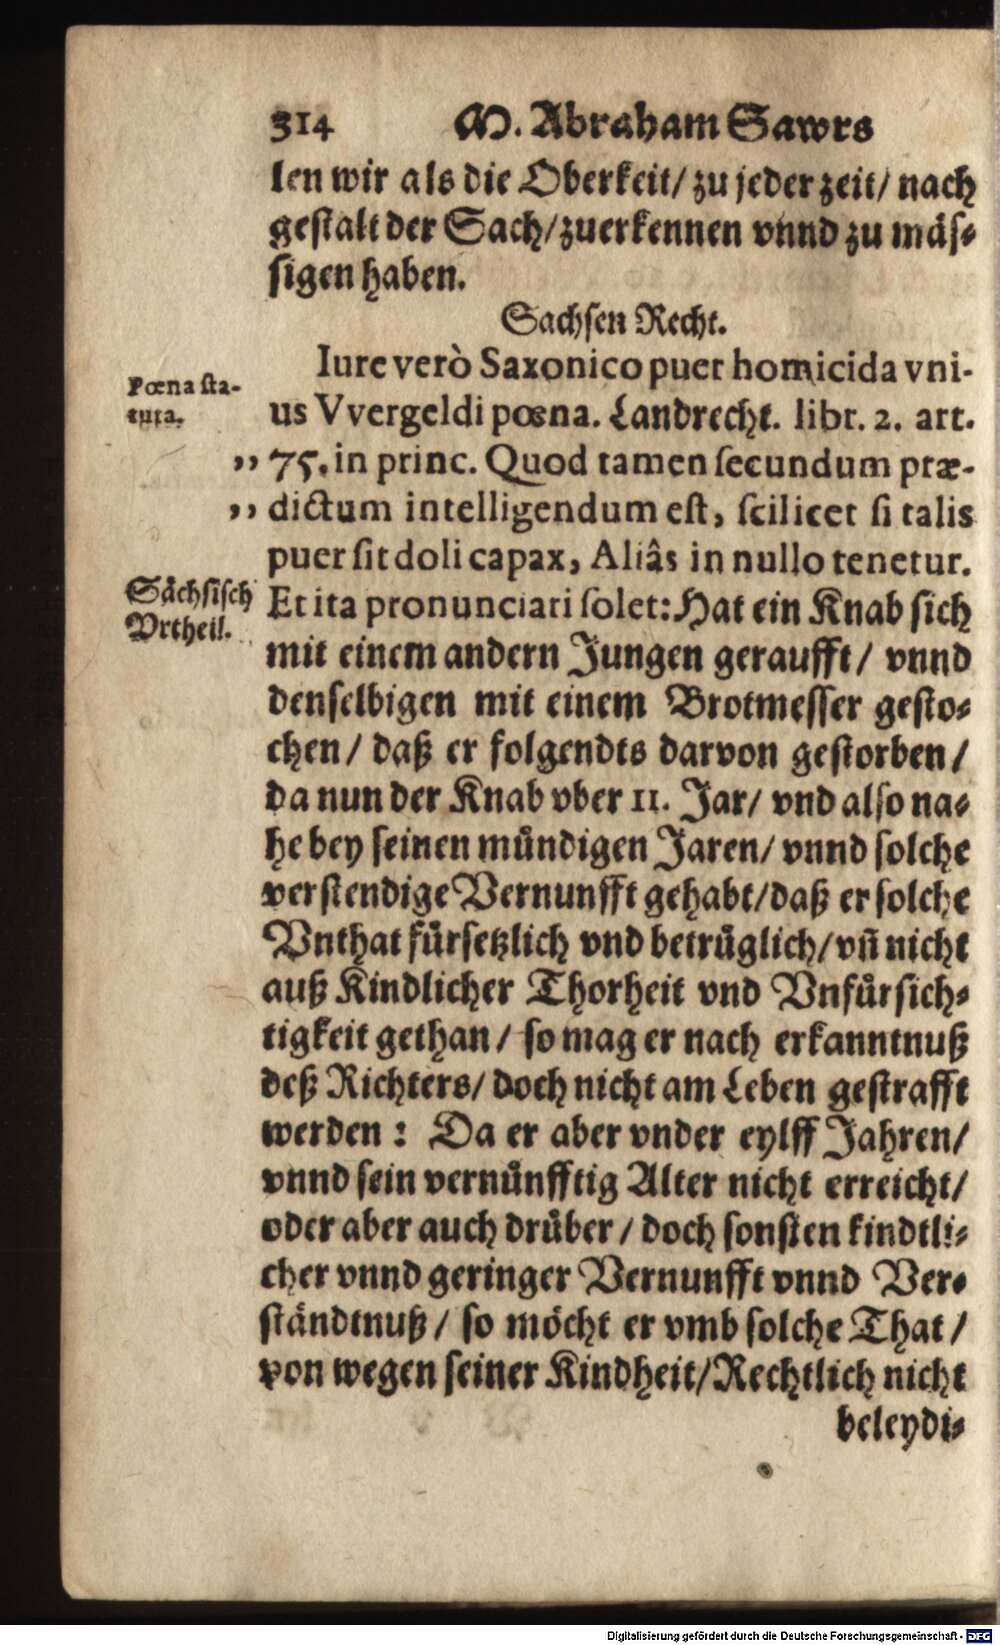 314 M. Abraham Sawrs
len wir als die Oberkeit/ zu jeder zeit/ nach
gestalt der Sach/ zuerkennen vnnd zu mäs-
sigen haben.
Sachsen Recht.
Iure verò Saxonico puer homicida vni-
Pœna sta-
tuta.
us Vvergeldi pœna. Landrecht. libr. 2. art.
„ 75. in princ. Quod tamen secundum præ-
„ dictum intelligendum est, scilicet si talis
puer sit doli capax, Aliâs in nullo tenetur.
Sächsisch
Vrtheil.
Et ita pronunciari solet: Hat ein Knab sich
mit einem andern Jungen geraufft/ vnnd
denselbigen mit einem Brotmesser gesto-
chen/ daß er folgendts darvon gestorben/
da nun der Knab vber 11. Jar/ vnd also na-
he bey seinen muͤndigen Jaren/ vnnd solche
verstendige Vernunfft gehabt/ daß er solche
Vnthat fuͤrsetzlich vnd betruͤglich/ vñ nicht
auß Kindlicher Thorheit vnd Vnfuͤrsich-
tigkeit gethan/ so mag er nach erkanntnuß
deß Richters/ doch nicht am Leben gestrafft
werden: Da er aber vnder eylff Jahren/
vnnd sein vernuͤnfftig Alter nicht erreicht/
oder aber auch druͤber/ doch sonsten kindtli-
cher vnnd geringer Vernunfft vnnd Ver-
ständtnuß/ so möcht er vmb solche That/
von wegen seiner Kindheit/ Rechtlich nicht
beleydi-
Digitalisierung gefördert durch die Deutsche Forschungsgemeinschaft - DFG